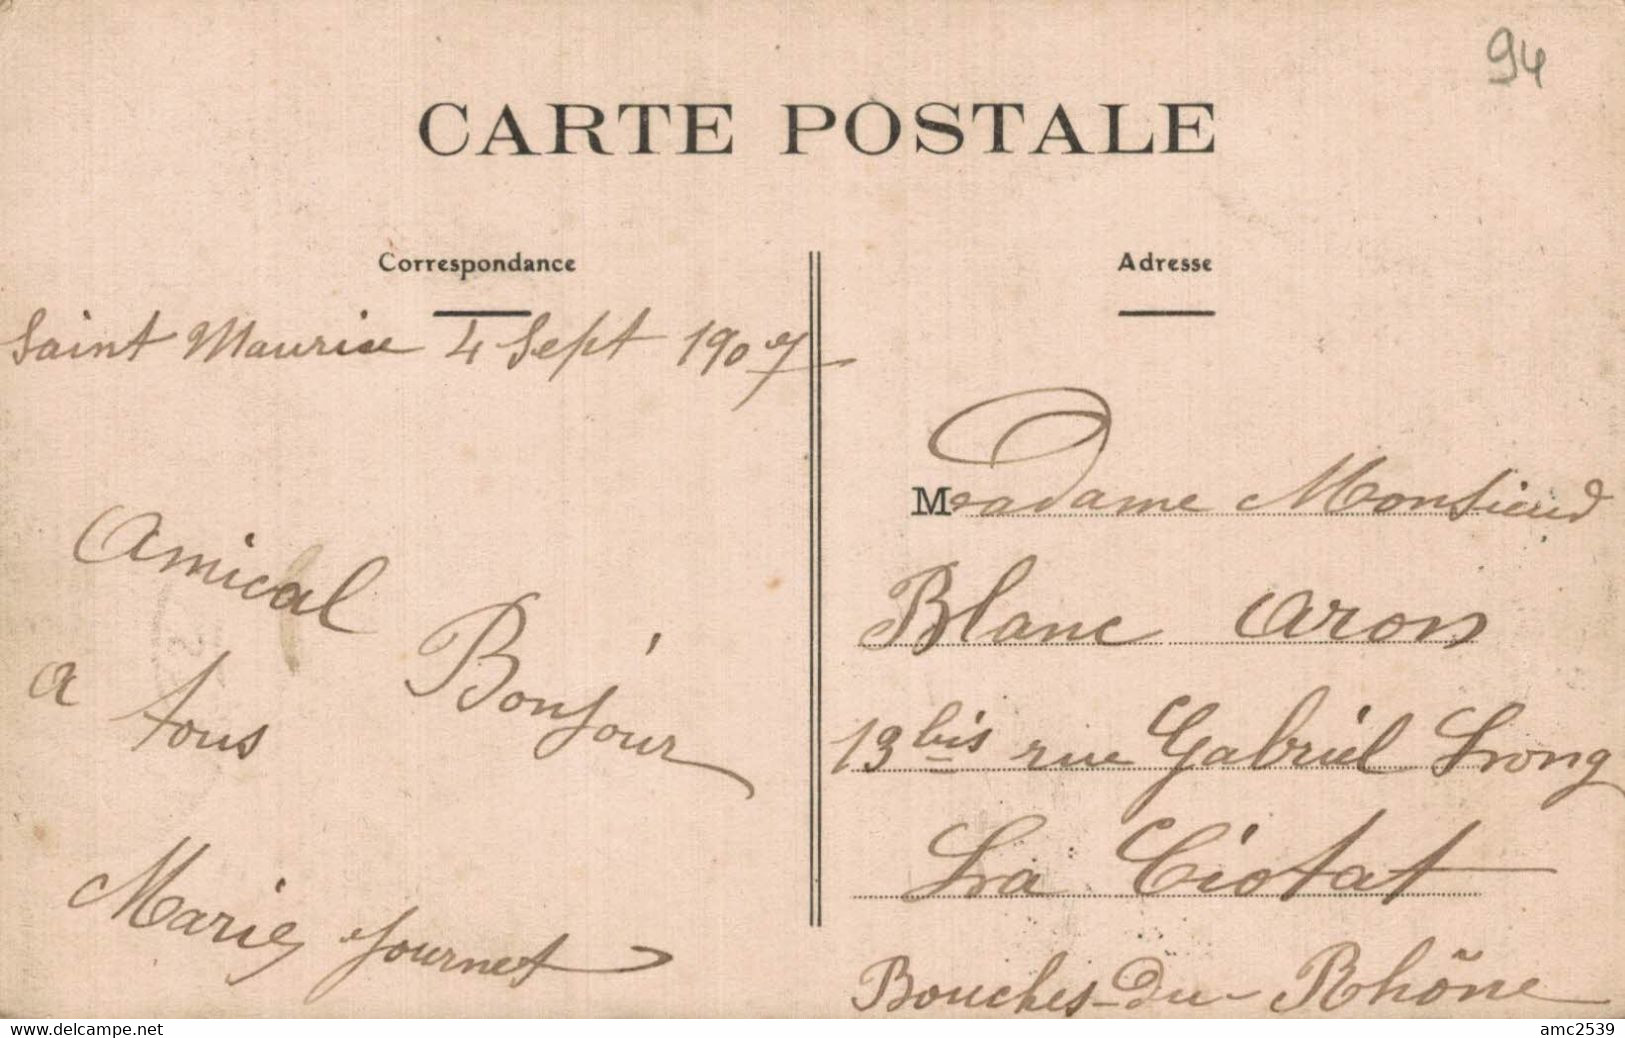 94
CARTE POSTALE
Correspondance
Saint Maurice 4 Sept 1907
Amical Bonjour
a tous
Marie Journet
Adresse
Madame Monsieur
Blanc Aron
13 bis rue Gabriel Long
La Ciotat
Bouches-du-Rhône
delcampe.net
amc2539